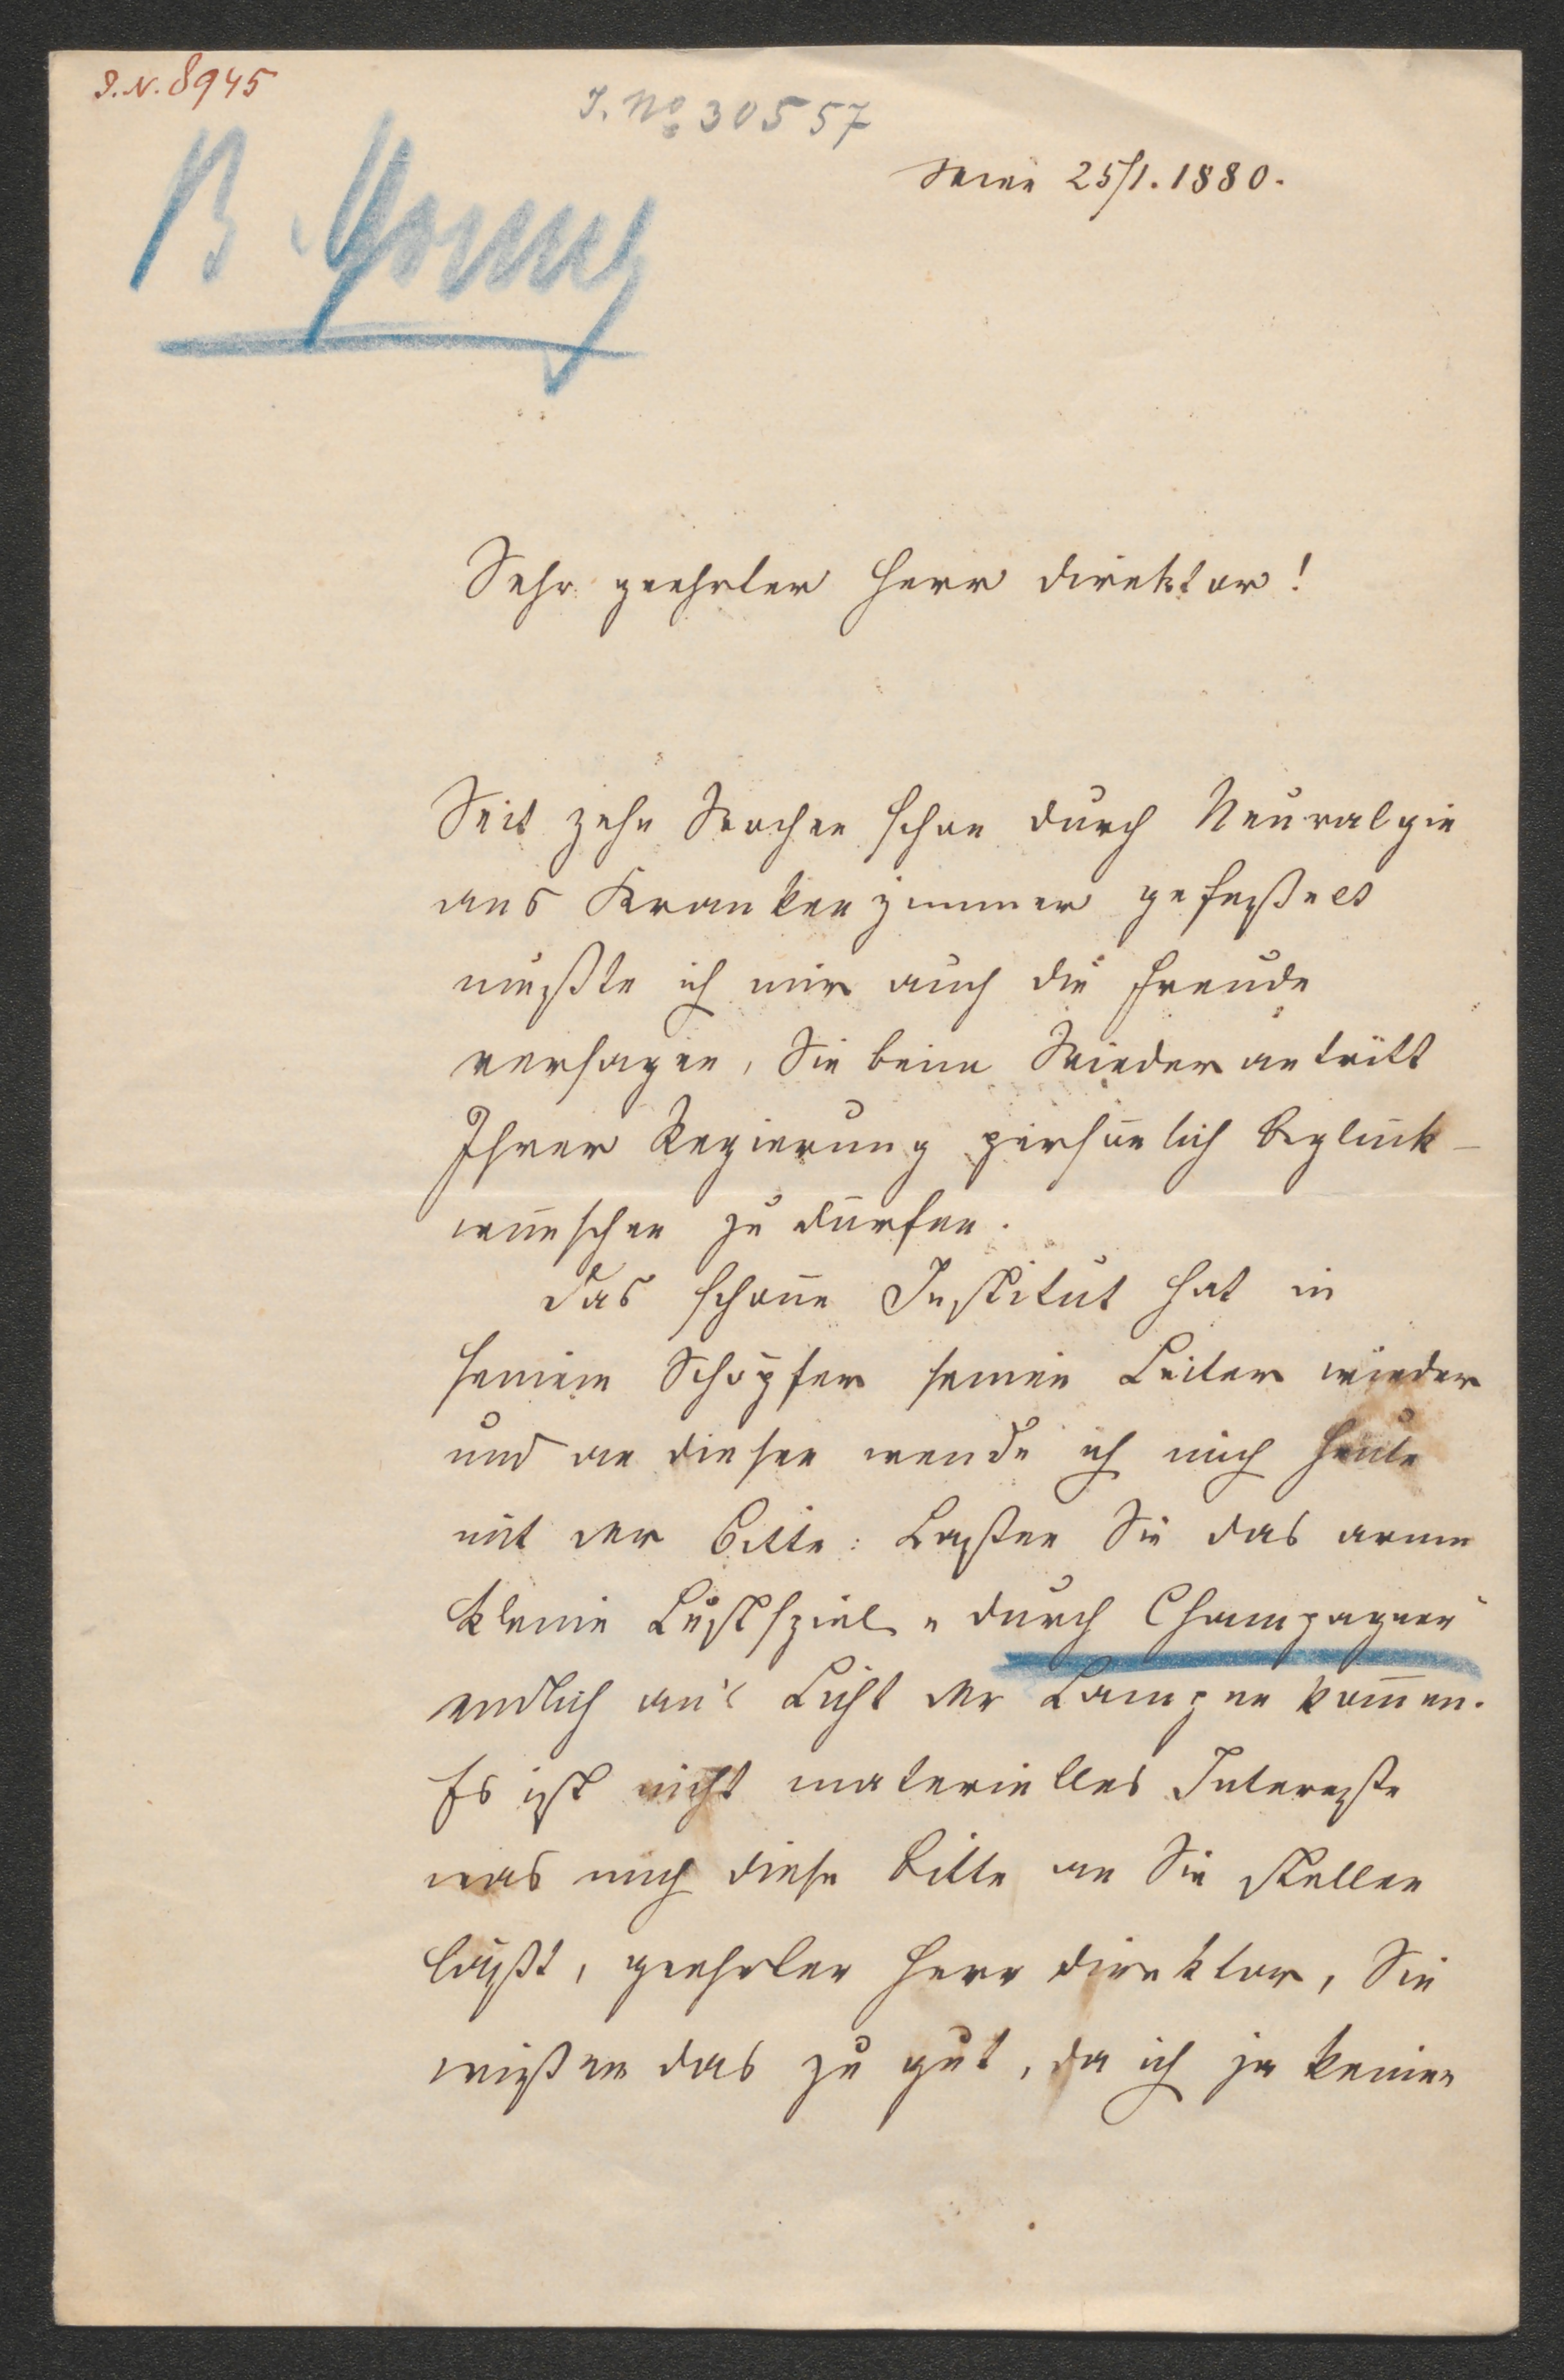 I.N. 8945
J. № 30557
Wien 25/1. 1880.
B.
Sehr geehrter Herr Direktor!
Seit zehn Wochen schon durch Neuralgie
ans Krankenzimmer gefeßelt
mußte ich mir auch die Freude
versagen, Sie beim Wiederantritt
Ihrer Regierung persönlich beglück-
wünschen zu dürfen.
Das schöne Institut hat in
seinem Schöpfer seinen Leiter wieder
und an diesen wende ich mich heute
mit der Bitte: Laßen Sie das arme
kleine Lustspiel „durch Champagner“
endlich an's Licht der Lampen kom̅en.
Es ist nicht materielles Intereße
was mich diese Bitte an Sie stellen
läßt, geehrter Herr Direktor, Sie
wißen das zu gut, da ich ja keinen